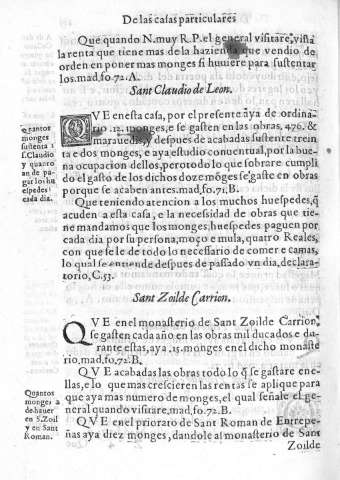 De las casas particulares
Que quando N. muy R. P. el general visitare, vista
la renta que tiene mas de la hazienda que vendio de
orden en poner mas monges si huuiere para sustentar
los. mad. fo. 72. A.
Sant Claudio de Leon.
QVE en esta casa, por el presente aya de ordina-
rio .12. monges, e se gasten en las obras, 476. &
marauedis, y despues de acabadas sustente trein
ta e dos monges, e aya estudio conuentual, por la bue-
na ocupacion dellos, pero todo lo que sobrare cumpli
do el gasto de los dichos doze mõges se gaste en obras
porque se acaben antes. mad, fo. 71, B.
Quantos
monges
sustenta
S. Claudio
y quanto
an de pa-
gar los hu
espedes
cada dia.
Que teniendo atencion a los muchos huespedes, q̃
acuden a esta casa, e la necesidad de obras que tie-
ne mandamos que los monges, huespedes paguen por
cada dia por su persona, moço e mula, quatro Reales,
con que se le de todo lo necessario de comer e camas,
lo qual se entiende despues de passado vn dia, declara-
torio, C. 53.
Sant Zoil de Carrion.
QVE en el monasterio de Sant Zoil de Carrion,
se gasten cada año en las obras mil ducados e du-
rante ellas, aya .15. monges en el dicho monaste
rio, mad, fo. 72, B.
QVE acabadas las obras todo lo q̃ se gastare ene-
llas, e lo que mas crescieren las rentas se aplique para
que aya mas numero de monges, el qual señale el ge-
neral quando visitare, mad, fo. 72. B.
Quantos
monges a
de hauer
en S. Zoil
y en Sant
Roman.
QVE en el priorato de Sant Roman de Entrepe-
ñas aya diez monges, dandole al monasterio de Sant
Zoil de